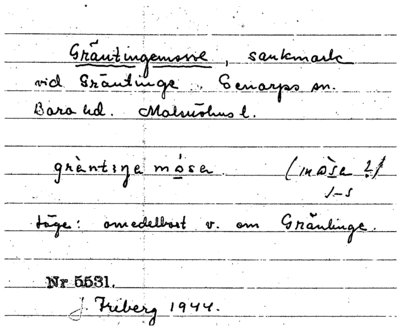 Gräntingemosse, sankmark
vid Gräntinge Genarps sn.
Bara hd. Malmöhus l.
gràntıŋe mósa (mòsa ?)
s-s
Läge: omedelbart v. om Gräntinge.
Nr 5531.
J. Friberg 1944.